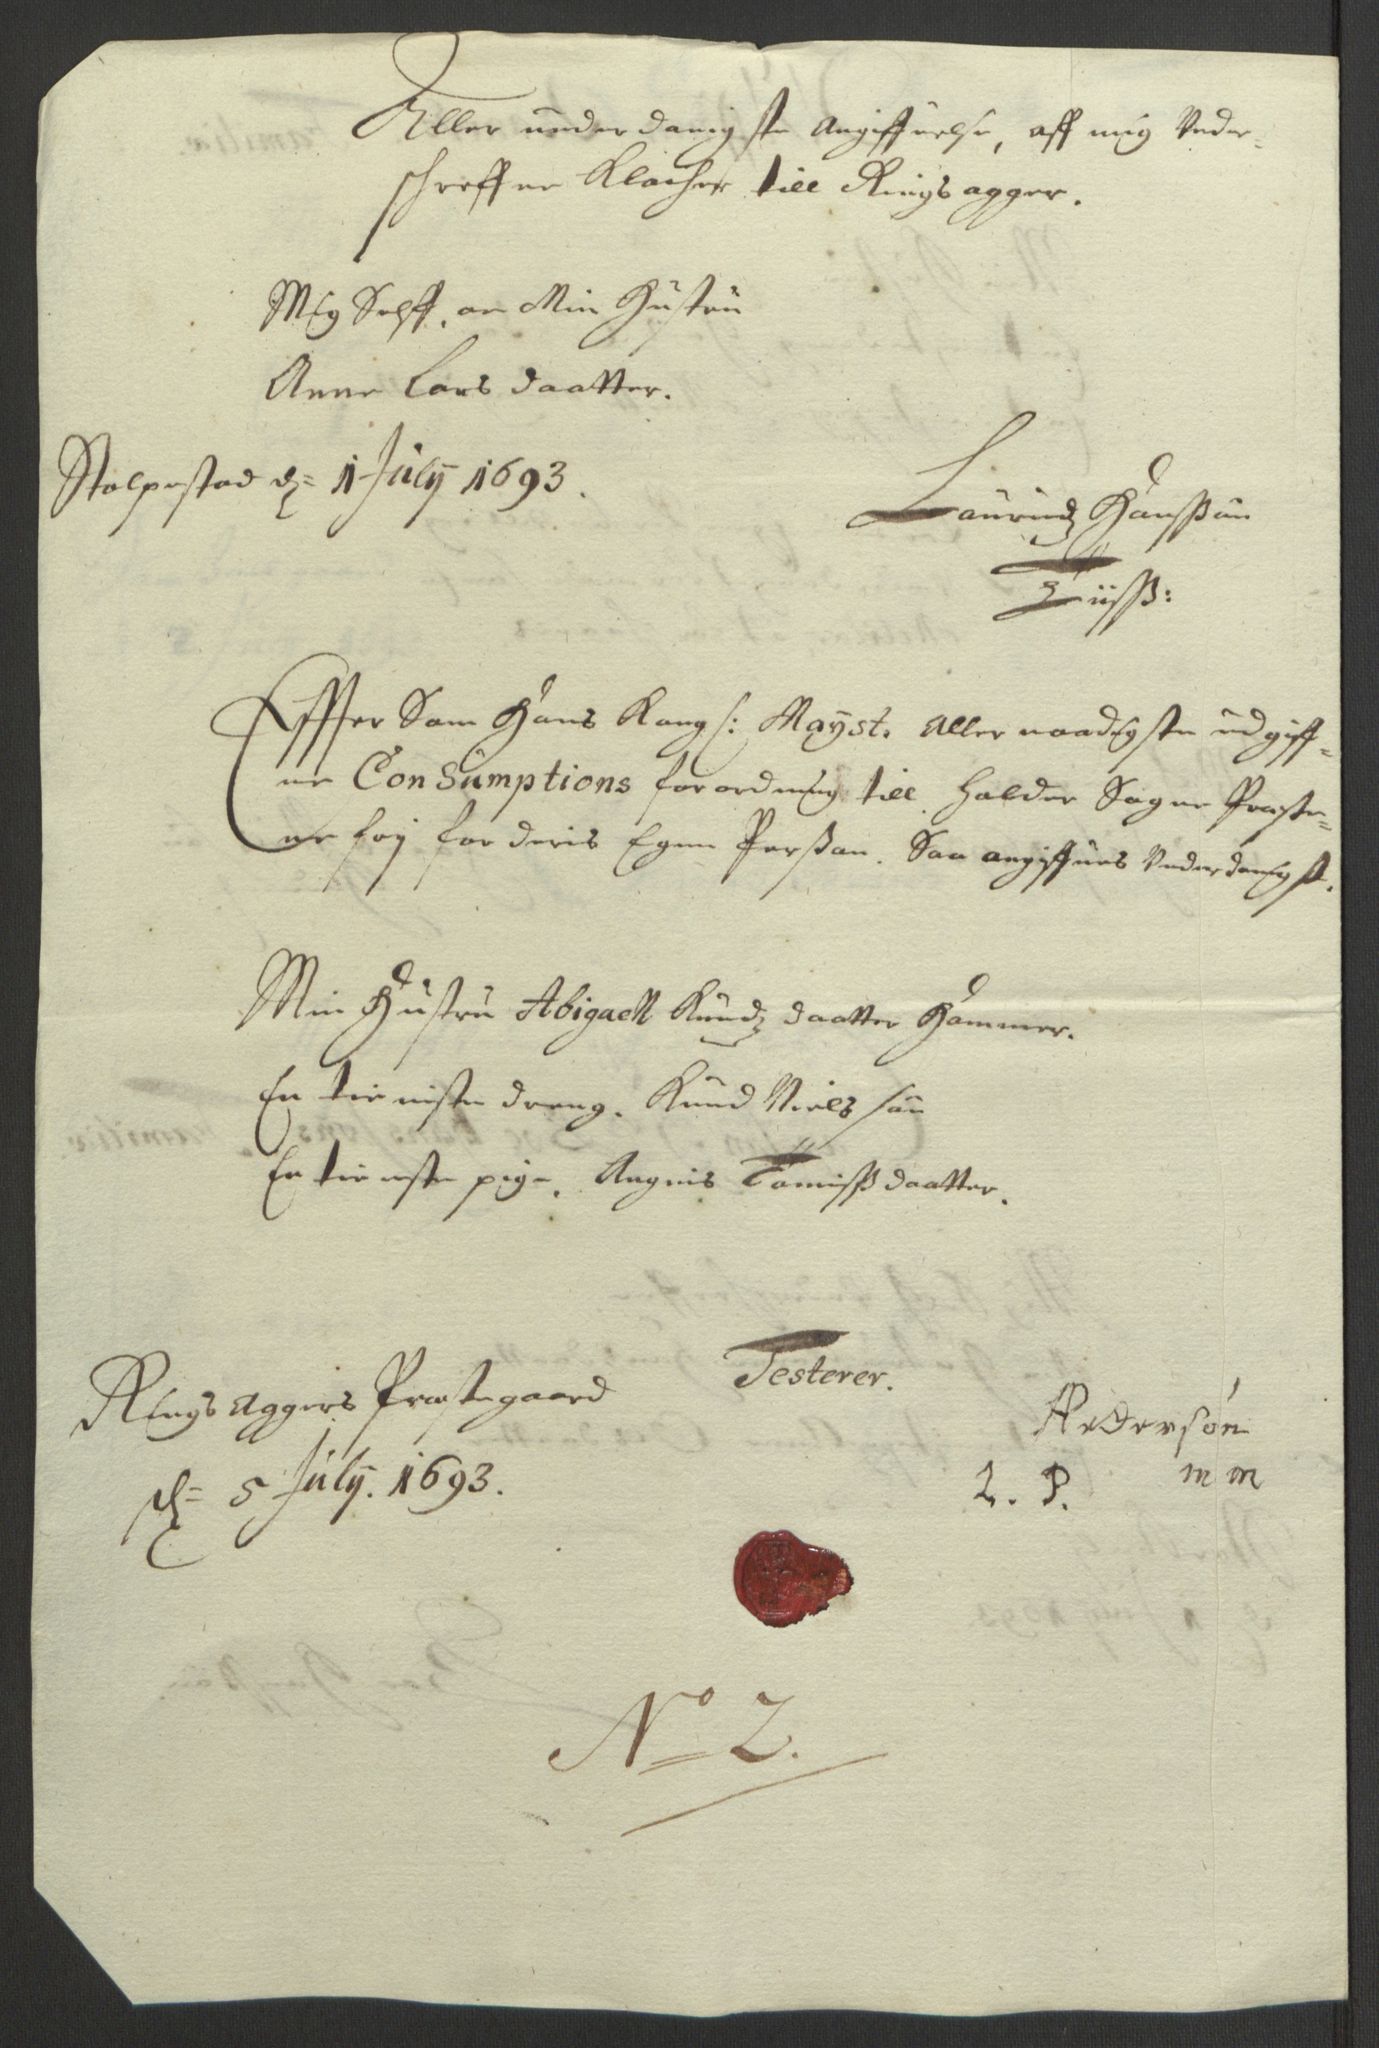 Aller underdanigste Angiffuelse, aff mig Under=
schreffne Klocher till Ringsagger.
Mig Selff, oc Min Hustru
Anne Larsdaatter.
Stolpestad d= 1 July 1693.
Lauridz Hanssøn
Effter Som Hans Kong l: Mayst. Aller naadigste udgiff=
ne Consumptions forordning till holder Sogne Præste=
ne frj for deris Egen Persson. Saa angiffues Underdanigst.
Min Hustru Abigaell Knudz daatter Hammer.
En tienniste dreng. Knud Niels søn
En tienniste pige. Angnis Tomissdaatter.
Testerer.
Rings Aggers Præstegaard
d= 5 July. 1693.
Pedersøn
L. P. m m
No 2.